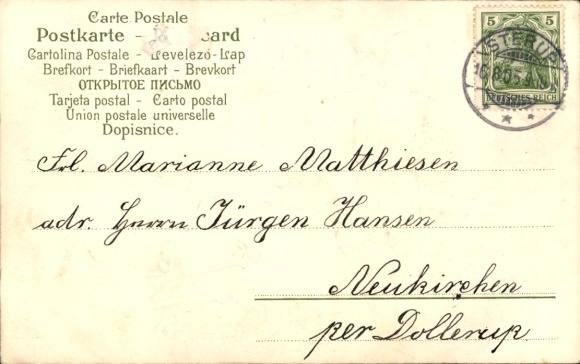 Carte Postale
Postkarte - card
Cartolina Postale - Levelező-Lap
Brefkort - Briefkaart - Brevkort
ОТКРЫТОЕ ПИСЬМО
Tarjeta postal - Carto postal
Union postale universelle
Dopisnice.
5 5
DEUTSCHES REICH
STERUP
16.8.05
Frl. Marianne Matthiesen
adr. Herrn Jürgen Hansen
Neukirchen
per Dollerup.